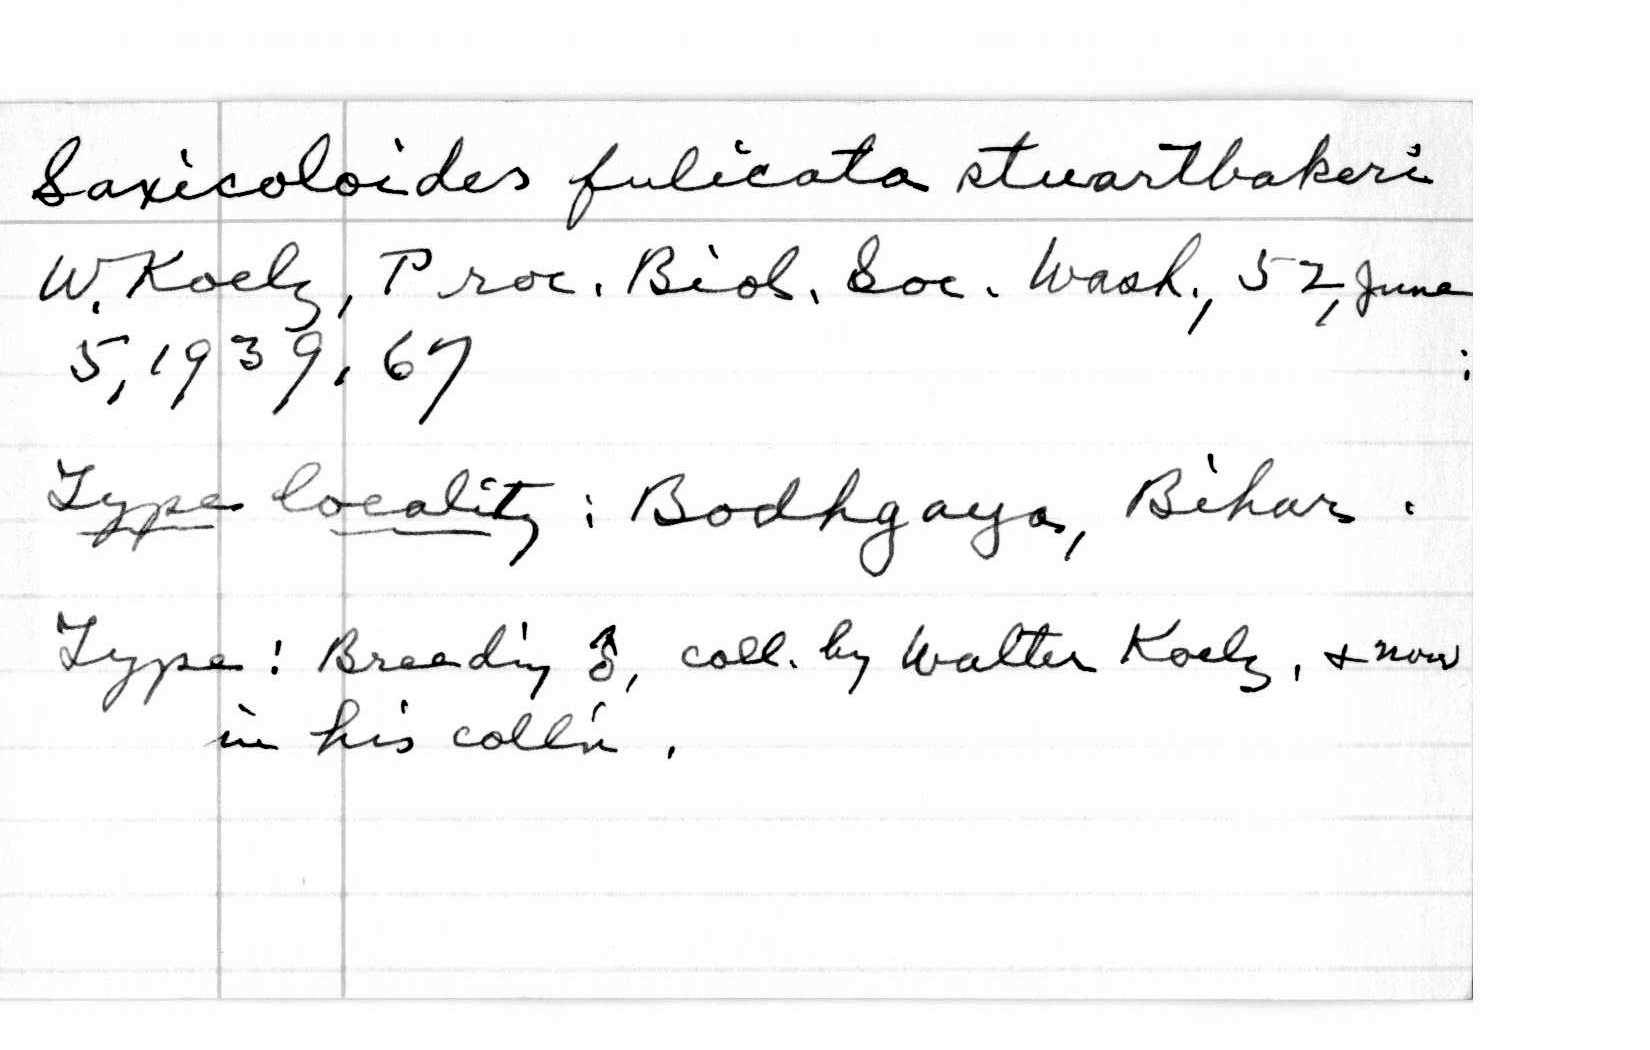 Saxicoloides fulicata stuartbakeri
W. Koelz, Proc. Biol. Soc. Wash., 52, June
5, 1939, 67 :
Type locality : Bodhgaya, Bihar .
Type : Breeding ♂, coll. by Walter Koelz, & now
in his coll'n .